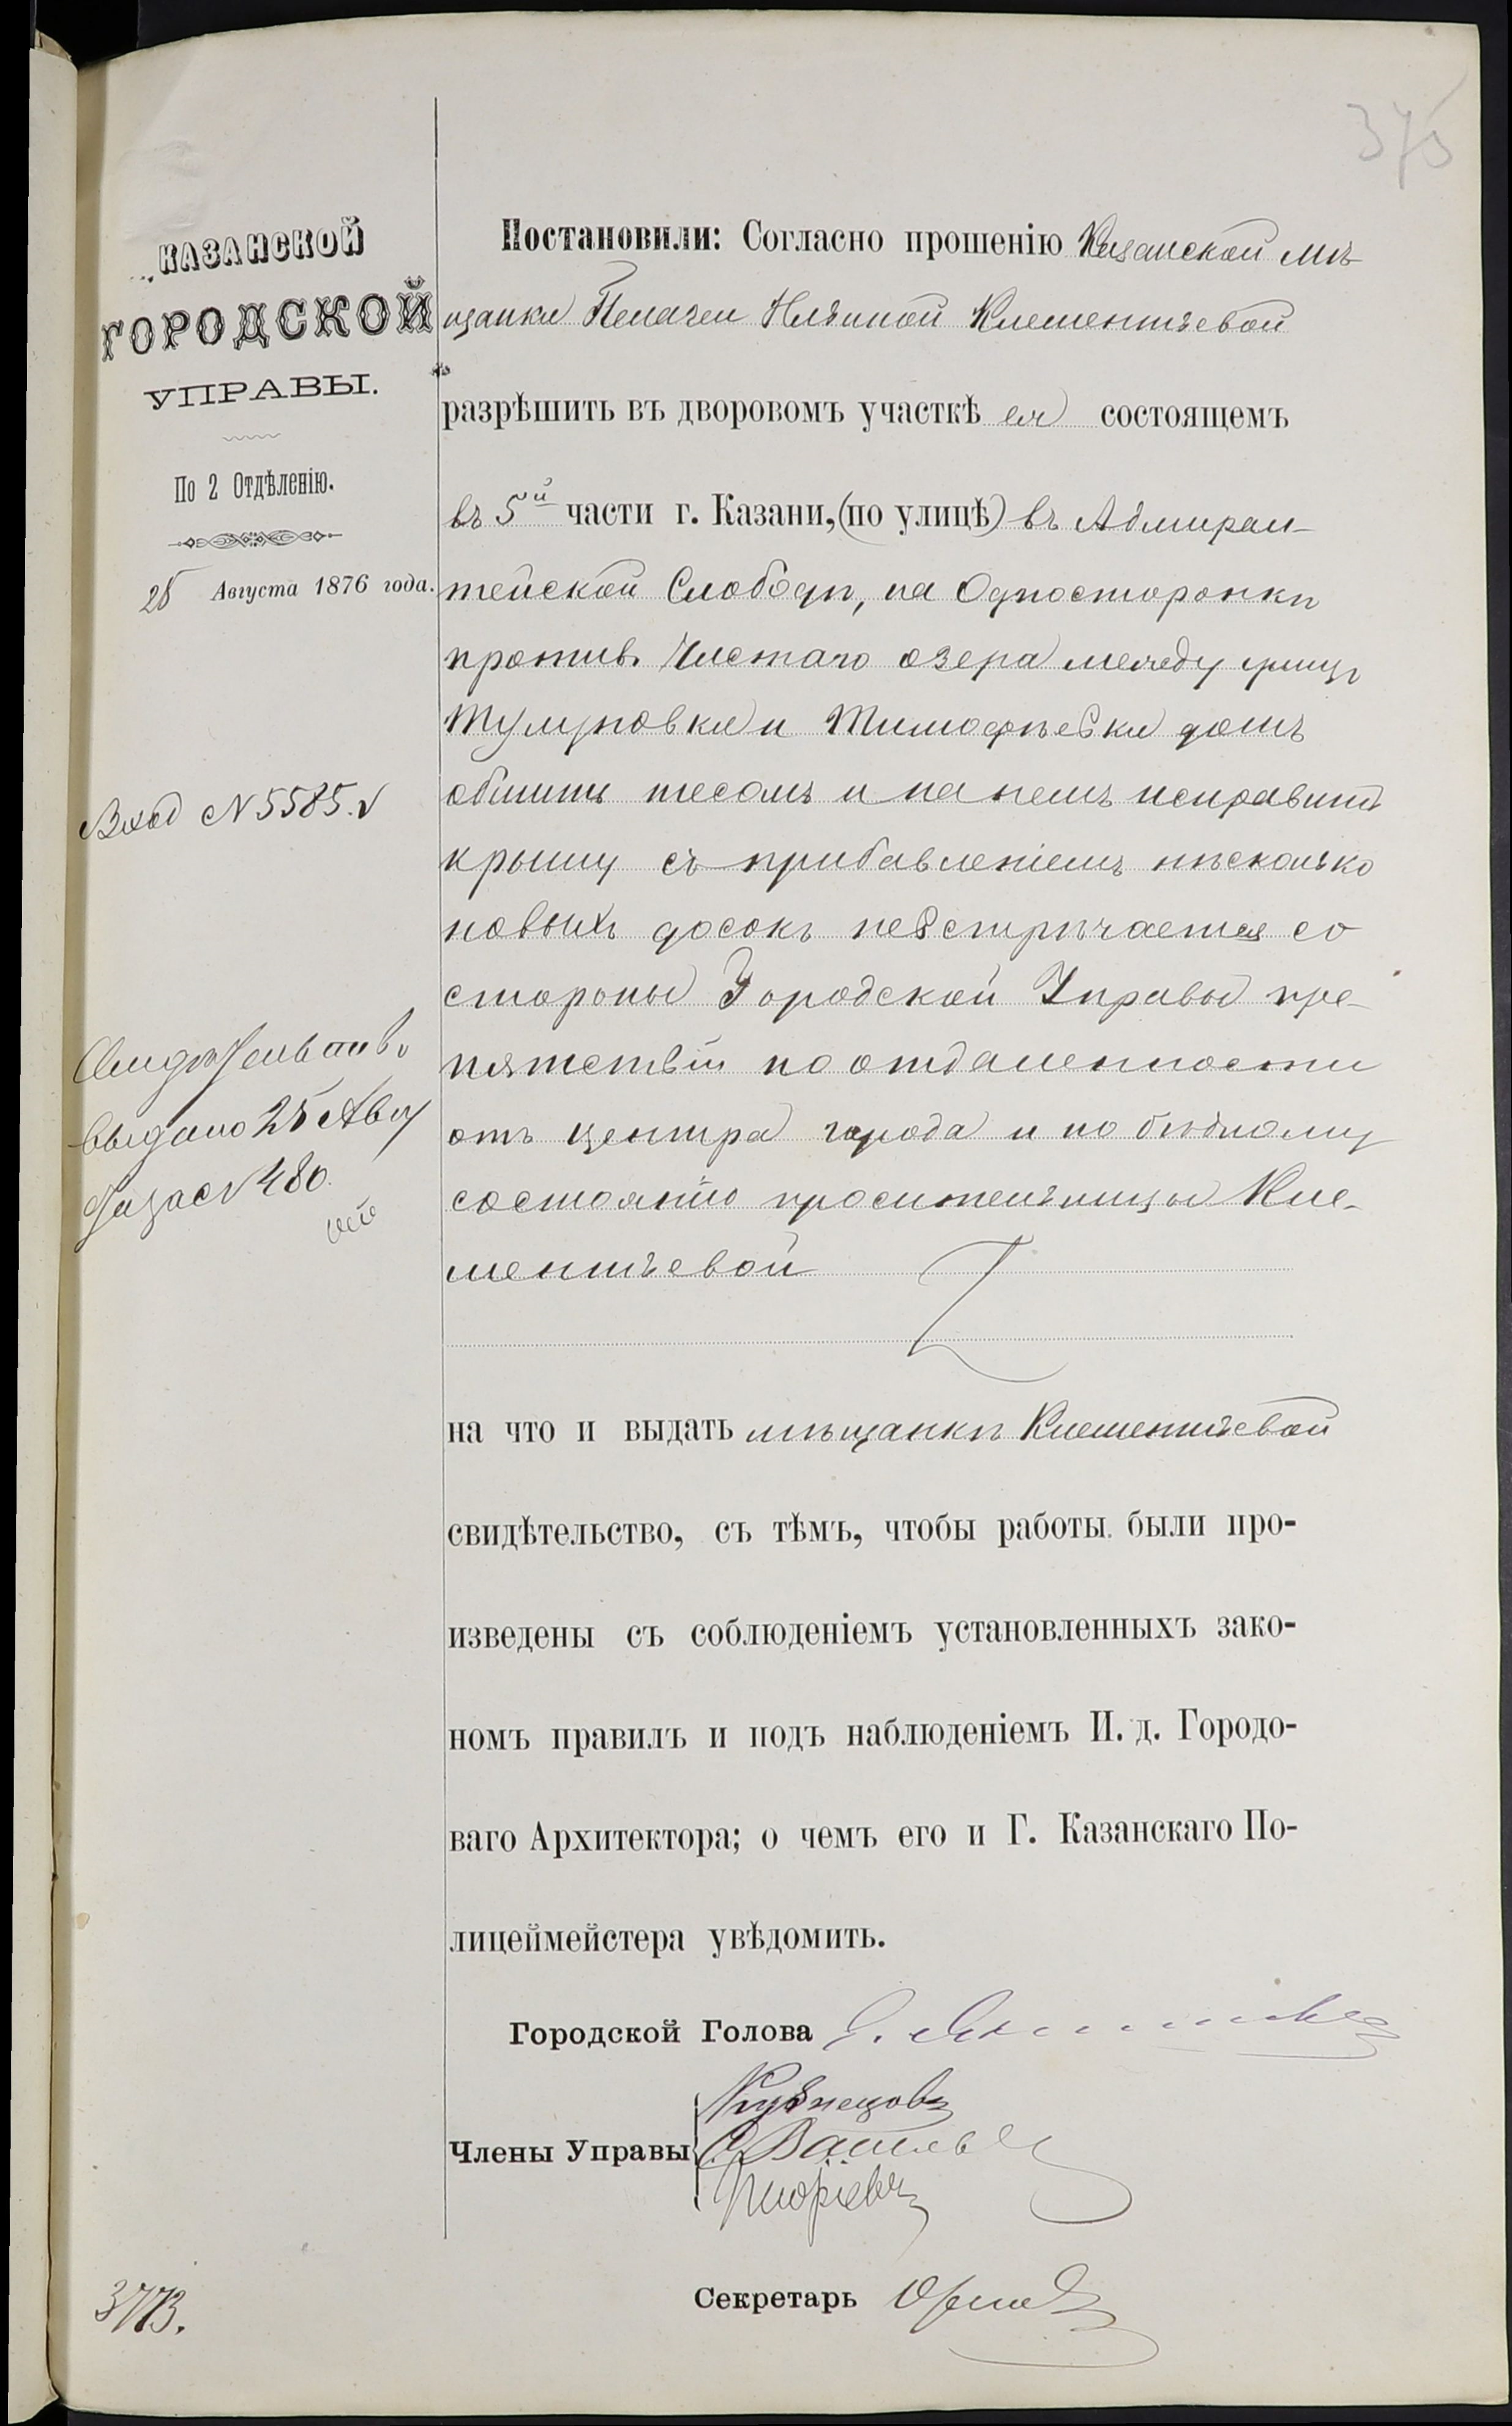 375
КАЗАНСКОЙ
ГОРОДСКОЙ
УПРАВЫ.
По 2 Отдѣленію.
25 Августа 1876 года.
Вход N 5585.
Свидѣтельство
выдано 25 Авгу
за № 480.
3773.
Постановили: Согласно прошенію Казанской мѣ-
щанки Пелагеи Ильиной Клементьевой
разрѣшить въ дворовомъ участкѣ ея состоящемъ
въ 5й части г. Казани, (по улицѣ) въ Адмирал-
тейской Слободѣ, на Односторонкѣ
противъ Чистаго озера между улицъ
Тулуповки и Тимофѣевки домъ
обшить тесомъ и на немъ исправить
крышу съ прибавленіемъ нѣсколько
новыхъ досокъ невстрѣчается со
стороны Городской Управы пре-
пятствій по отдаленности
отъ центра города и по бѣдному
состоянію просительницы Кле-
ментьевой
на что и выдать мѣщанкѣ Клементьевой
свидѣтельство, съ тѣмъ, чтобы работы были про-
изведены съ соблюденіемъ установленныхъ зако-
номъ правилъ и подъ наблюденіемъ И. д. Городо-
ваго Архитектора; о чемъ его и Г. Казанскаго По-
лицеймейстера увѣдомить.
Городской Голова
Члены Управы
Кузнецовъ
Секретарь